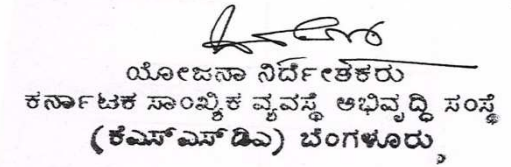 ಯೋಜನಾ ನಿರ್ದೇಶಕರು
ಕರ್ನಾಟಕ ಸಾಂಖ್ಯಿಕ ವ್ಯವಸ್ಥೆ ಅಭಿವೃದ್ಧಿ ಸಂಸ್ಥೆ
(ಕೆಎಸ್ಎಸ್‌ಡಿಎ) ಬೆಂಗಳೂರು,